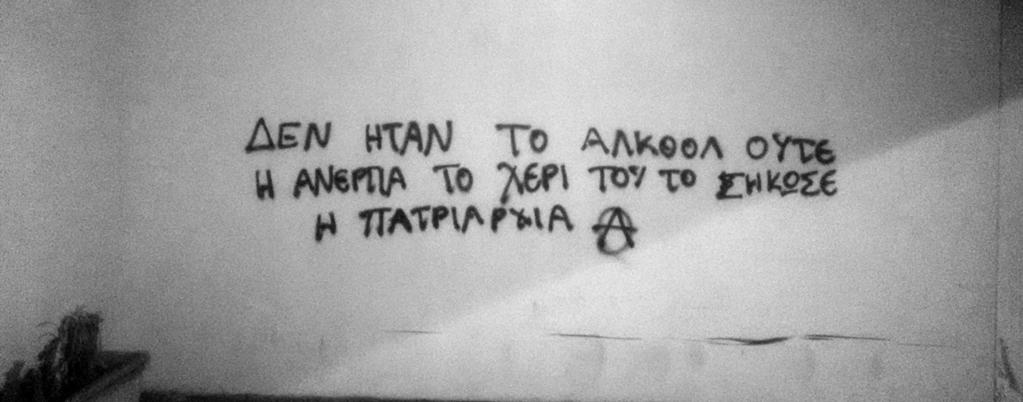 ΔΕΝ ΗΤΑΝ ΤΟ ΑΛΚΟΟΛ ΟΥΤΕ
Η ΑΝΕΡΓΙΑ ΤΟ ΧΕΡΙ ΤΟΥ ΤΟ ΣΗΚΩΣΕ
Η ΠΑΤΡΙΑΡΧΙΑ Ⓐ